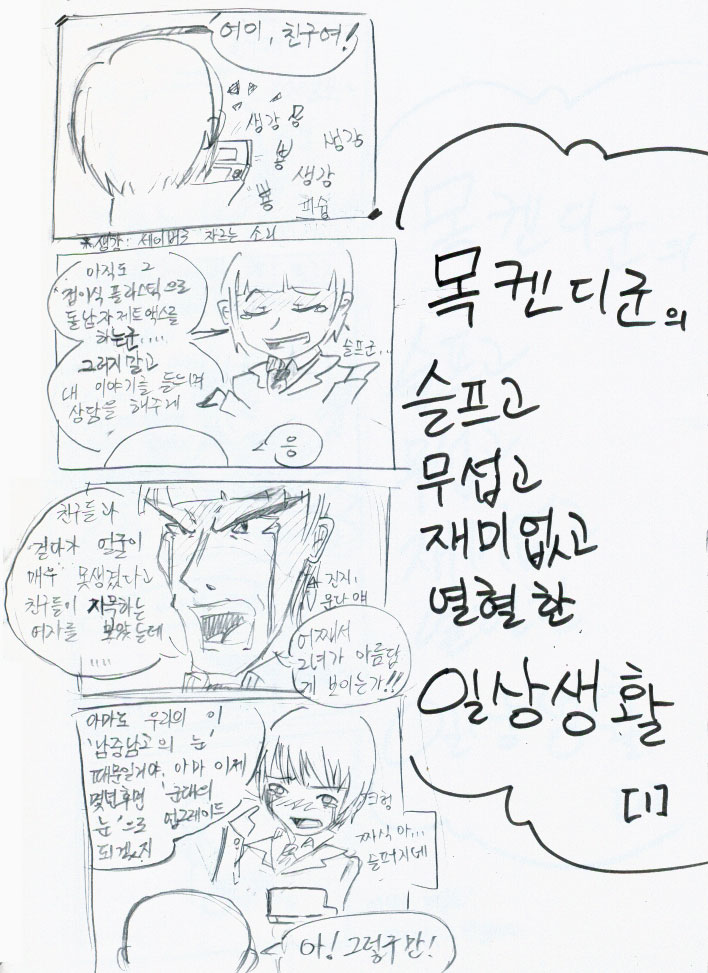 어이, 친구여!
생강
뿅
생강
뿅
생강
뿅
피슝
아직도 그
접이식 플라스틱으로
둘남자 제트엑스를
하는군....
그러지말고
내 이야기를 들으며
상담을 해주게
슬프군...
응
친구들과
걷다가 얼굴이
매우 못생겼다고
친구들이 지목하는
여자를 보았는데
....
진지,
운다 얘
어째서
그녀가 아름답
게 보이는가!!
아마도 우리의 이
'남중남고의 눈'
때문일거야. 아마 이제
몇년후면 '군대의
눈'으로 업그레이드
되겠지
크헝
짜식아...
슬퍼지네
아! 그렇구만!
목켄디군의
슬프고
무섭고
재미없고
열혈한
일상생활
[1]